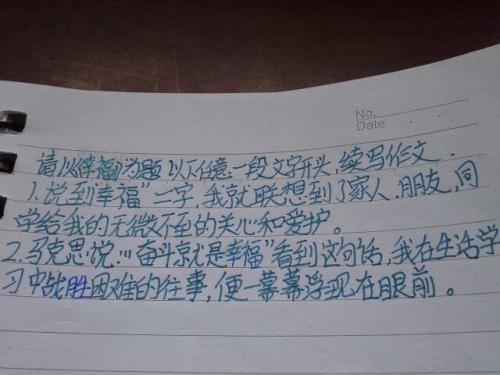 No.
Date
请以《幸福》为题以下任意一段文字开头,续写作文.
1.说到幸福"二字,我就联想到了家人.朋友,同
学给我的无微不至的关心和爱护。
2.马克思说:"奋斗就是幸福"看到这句话,我在生活学
习中战胜困难的往事,便一幕幕浮现在眼前。